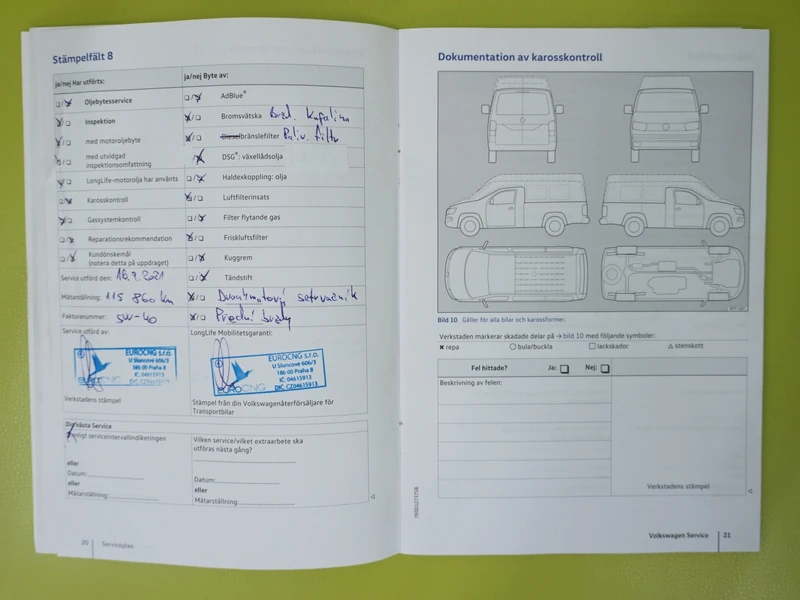 Stämpelfält 8
ja/nej Har utförts:
ja/nej Byte av:
Oljebytesservice
AdBlue®
Inspektion
Bromsvätska Brzd. Kapalina
med motoroljebyte
Dieselbränslefilter Paliv. filtr
med utvidgad
inspektionsomfattning
DSG®: växellådsolja
LongLife-motorolja har använts
Haldexkoppling: olja
Karosskontroll
Luftfilterinsats
Gassystemkontroll
Filter flytande gas
Reparationsrekommendation
Friskluftsfilter
Kundönskemål
(notera detta på uppdraget)
Kuggrem
Service utförd den: 16.9.2021
Tändstift
Mätarställning: 115 860 km
Dvouhmotový setrvačník
Fakturanummer: SW-40
Přední brzdy
Service utförd av:
EUROCNG s.r.o.
U Sluncove 606/3
186 00 Praha 8
IČ: 04615913
DIČ: CZ04615913
EUROCNG
Verkstadens stämpel
LongLife Mobilitetsgaranti:
EUROCNG s.r.o.
U Sluncove 606/3
186 00 Praha 8
IČ: 04615913
DIČ: CZ04615913
EUROCNG
Stämpel från din Volkswagenåterförsäljare för
Transportbilar
Din nästa Service
Enligt serviceintervallindikeringen
eller
Datum:
eller
Mätarställning:
Vilken service/vilket extraarbete ska
utföras nästa gång?
Datum:
eller
Mätarställning:
20 Serviceplan
Dokumentation av karosskontroll
Bild 10 Gäller för alla bilar och karossformer.
Verkstaden markerar skadade delar på → bild 10 med följande symboler:
× repa
○ bula/buckla
□ lackskador
△ stenskott
Fel hittade? Ja: Nej:
Beskrivning av felen:
Verkstadens stämpel
Volkswagen Service 21